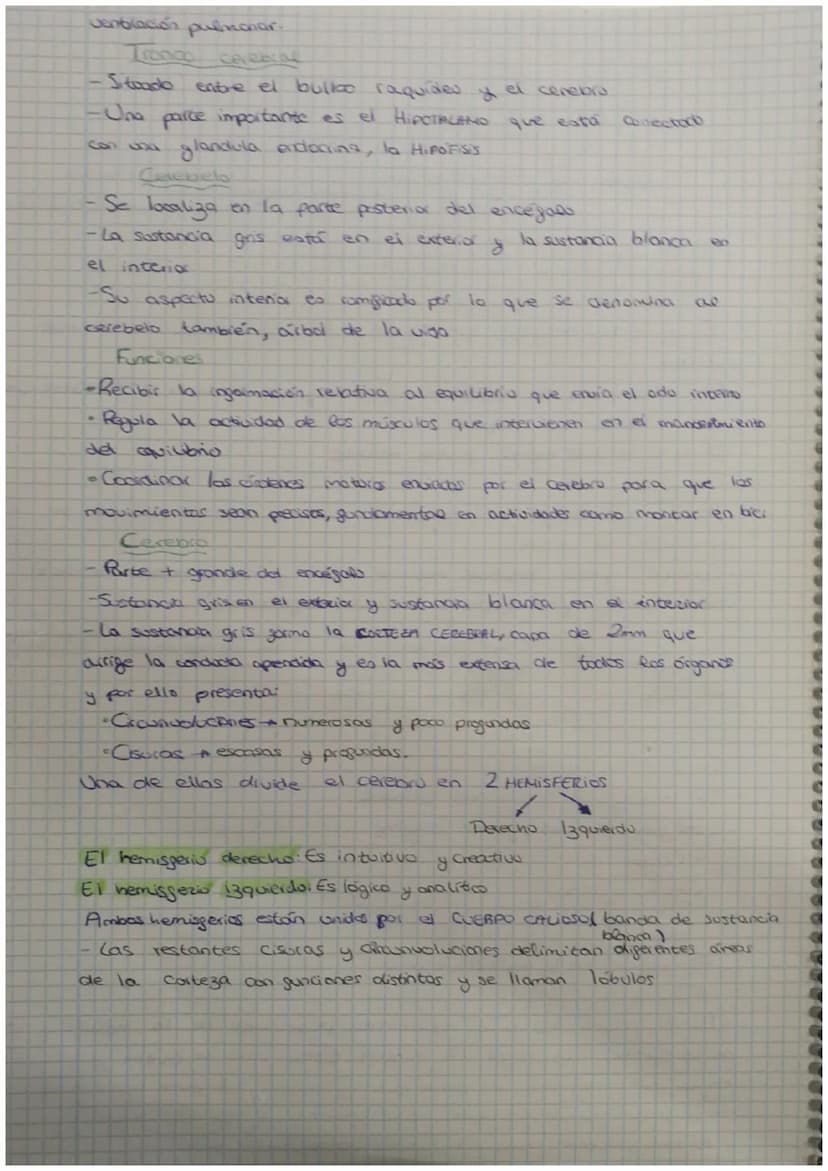 ventilación pulmonar.
Tronco cerebral
- Situado entre el bulbo raquídeo y el cerebro
- Una parte importante es el HIPOTALAMO que está conectado
con una glandula endocina, la HIPOFISIS
Cerebelo
- Se localiza en la parte posterior del encefalo
- La sustancia gris está en el exterior y la sustancia blanca en
el interior
- Su aspecto interior es ramificado por lo que se denomina al
cerebelo también, árbol de la vida
Funciones
- Recibir la información relativa al equilibrio que envía el oido interno
• Regula la actividad de los músculos que intervienen en el mantenimiento
del equilibrio
• Coordinar las órdenes motoras enviadas por el cerebro para que los
movimientos sean pecisos, fundamental en actividades como montar en bici
Cerebro
- Parte + grande del encéfalo
- Sustancia gris en el exterior y sustancia blanca en el interior
- La sustancia gris forma la CORTEZA CEREBRAL, capa de 2mm que
dirige la conducta aprendida y es la más extensa de todos los órganos
y por ello presenta:
• Circunvoluciones → numerosas y poco profundas
• Cisuras → escasas y profundas.
Una de ellas divide el cerebro en 2 HEMISFERIOS
Derecho Izquierdo
El hemisferio derecho: Es intuitivo y creativo
El hemisferio izquierdo: Es lógico y analítico
Ambos hemisferios están unidos por el CUERPO CALLOSO( banda de sustancia
blanca)
- Las restantes cisuras y circunvoluciones delimitan diferentes áreas
de la corteza con funciones distintas y se llaman lóbulos